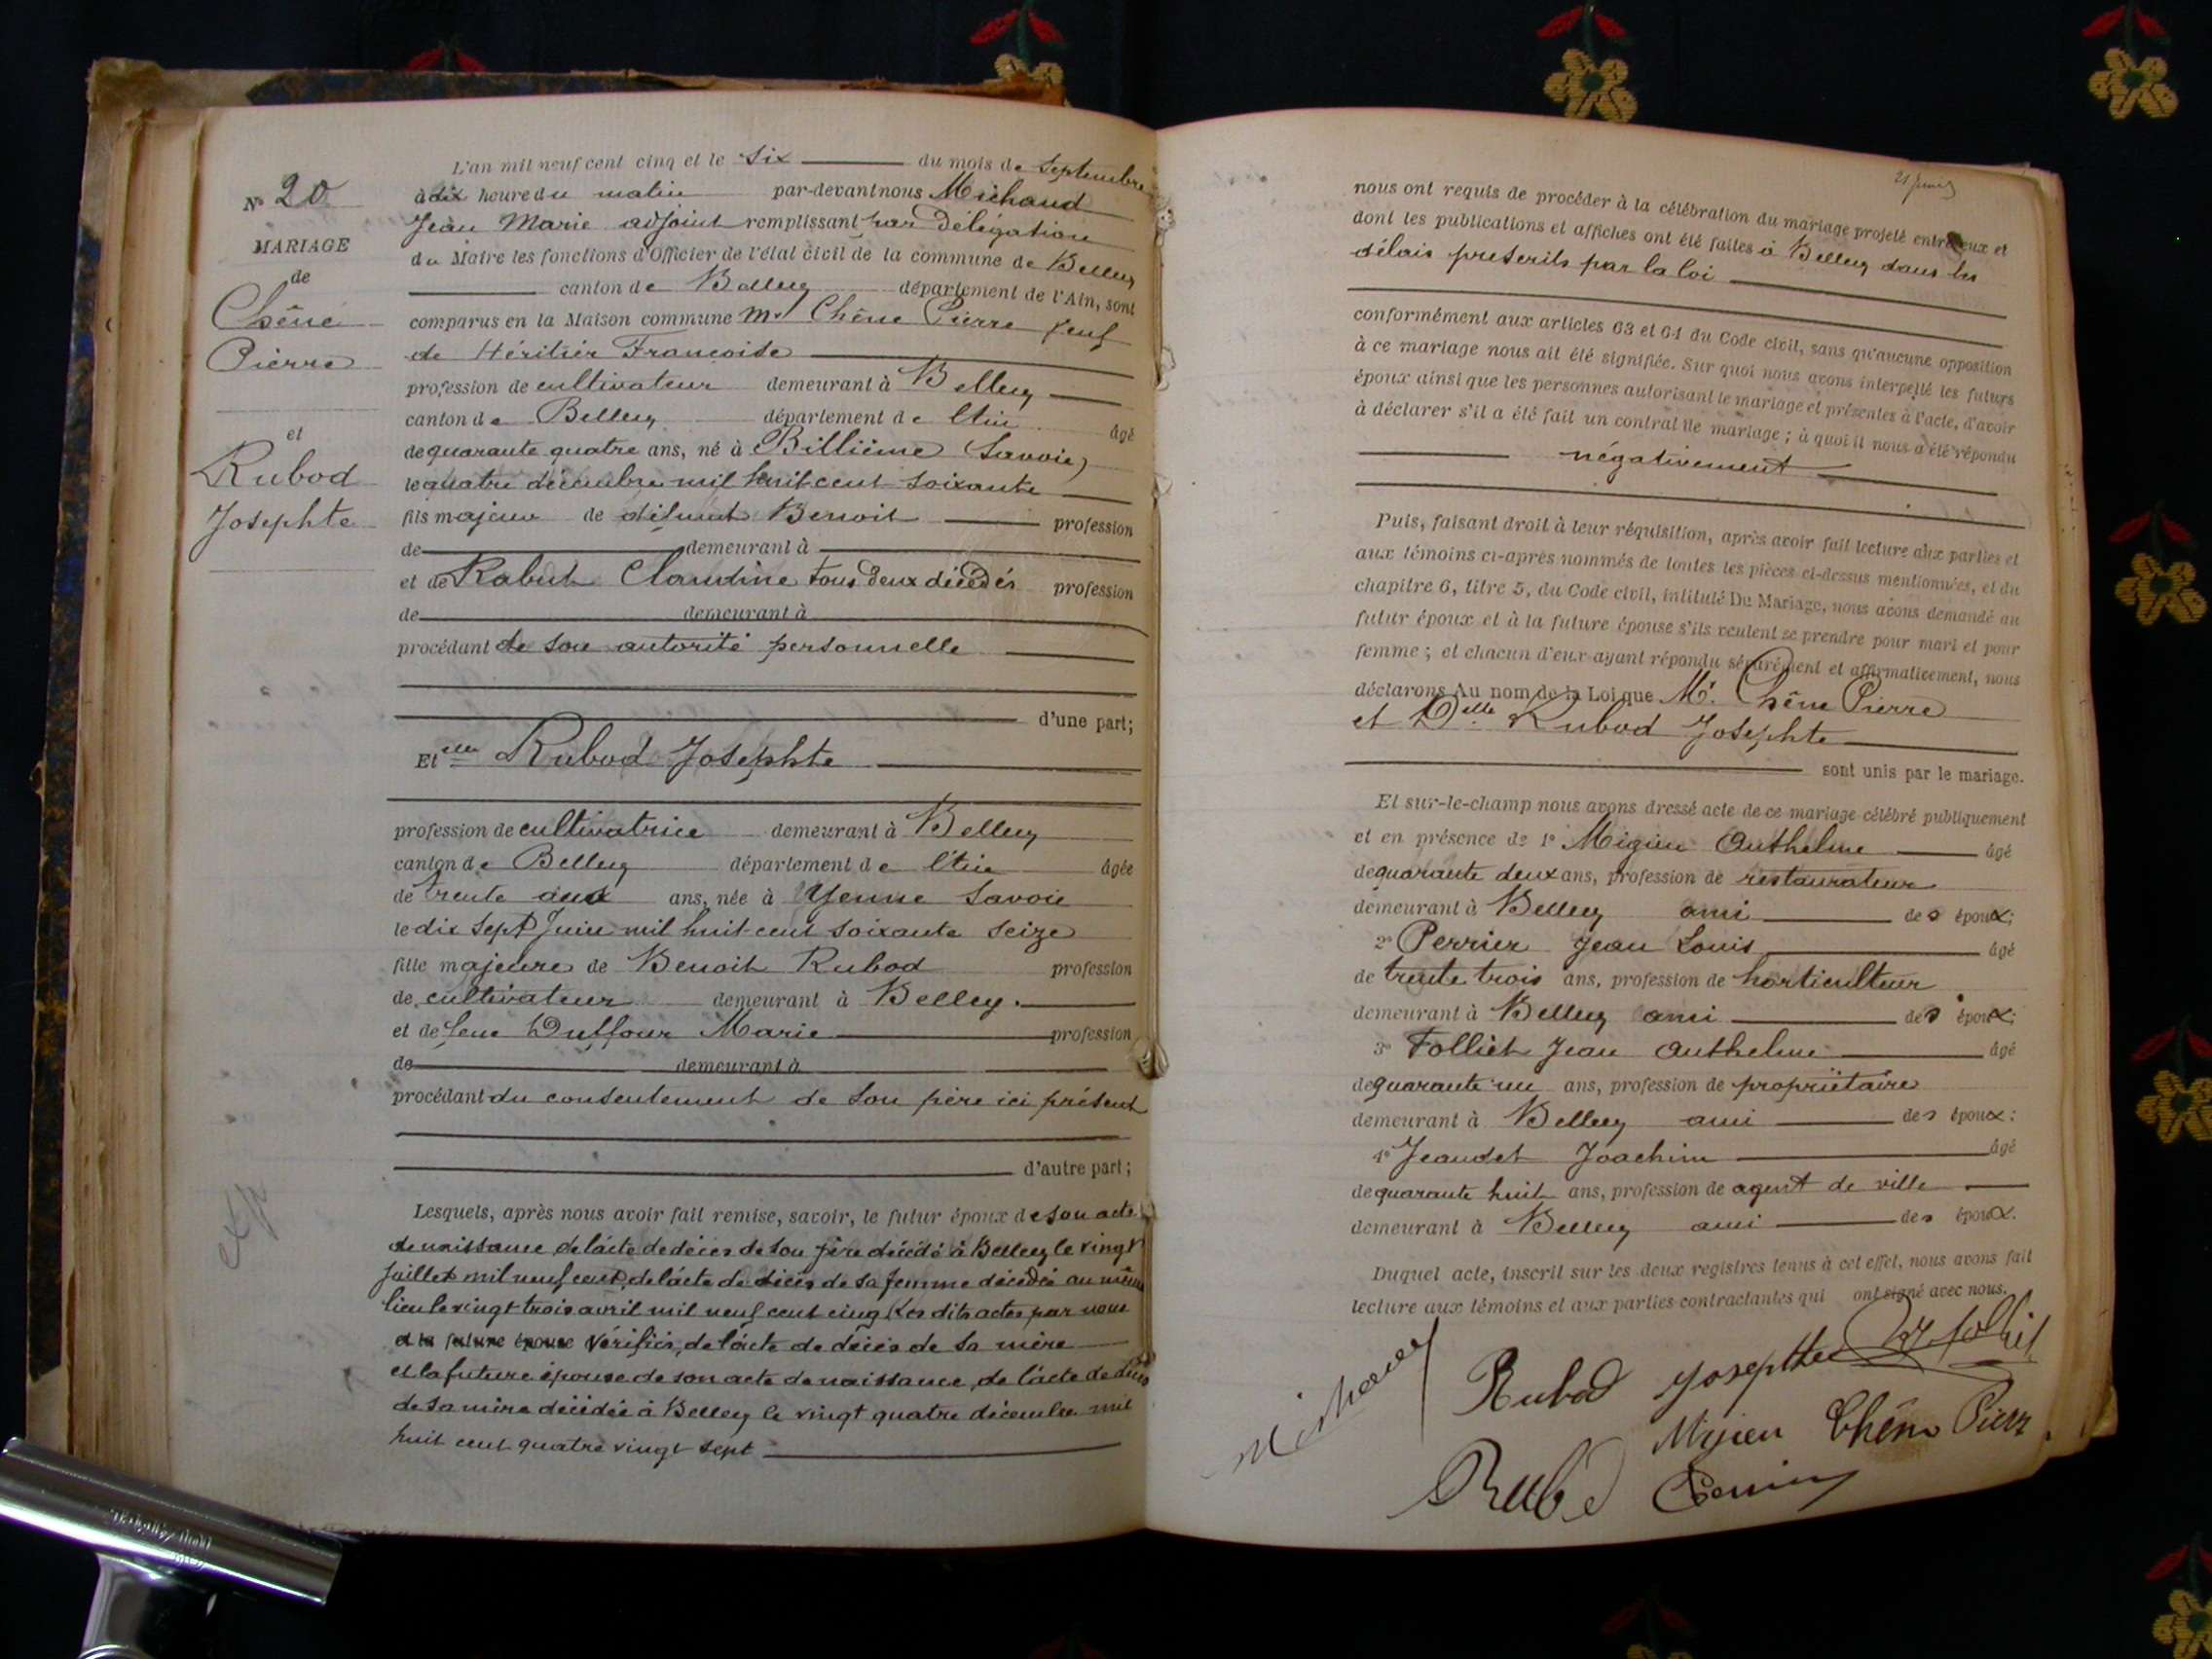 N° 20
MARIAGE
de
Chêne
Pierre
et
Rubod
Josephte
L'an mil neuf cent cinq et le six du mois de Septembre
à dix heure du matin par-devant nous Michaud
Jean Marie adjoint remplissant par Délégation
du Maire les fonctions d'Officier de l'état civil de la commune de Belley
canton de Belley département de l'Ain, sont
comparus en la Maison commune Mr Chêne Pierre veuf
de Héritier Françoise
profession de cultivateur demeurant à Belley
canton de Belley département de l'Ain âgé
de quarante quatre ans, né à Billième (Savoie)
le quatre décembre mil huit cent soixante
fils majeur de défunt Benoit profession
de demeurant à
et de Rabut Claudine tous deux décédés profession
de demeurant à
procédant de son autorité personnelle
d'une part;
Et elle Rubod Josephte
profession de cultivatrice demeurant à Belley
canton de Belley département de l'Ain âgée
de trente ans, née à Yenne Savoie
le dix sept Juin mil huit cent soixante seize
fille majeure de Benoit Rubod profession
de cultivateur demeurant à Belley.
et de feue Duffour Marie profession
de demeurant à
procédant du consentement de son père ici présent
d'autre part;
Lesquels, après nous avoir fait remise, savoir, le futur époux de son acte
de naissance, de l'acte de décès de son père décédé à Belley le vingt
Juillet mil neuf cent, de l'acte de décès de sa femme décédée au même
lieu le vingt trois avril mil neuf cent cinq Les dits actes par nous
et la future épouse vérifiés, de l'acte de décès de sa mère
et la future épouse de son acte de naissance, de l'acte de décès
de sa mère décédée à Belley le vingt quatre décembre mil
huit cent quatre vingt sept
exp
nous ont requis de procéder à la célébration du mariage projeté entre eux et
dont les publications et affiches ont été faites à Belley dans les
délais prescrits par la loi
conformément aux articles 63 et 64 du Code civil, sans qu'aucune opposition
à ce mariage nous ait été signifiée. Sur quoi nous avons interpellé les futurs
époux ainsi que les personnes autorisant le mariage et présentes à l'acte, d'avoir
à déclarer s'il a été fait un contrat de mariage; à quoi il nous a été répondu
négativement
Puis, faisant droit à leur réquisition, après avoir fait lecture aux parties et
aux témoins ci-après nommés de toutes les pièces ci-dessus mentionnées, et du
chapitre 6, titre 5, du Code civil, intitulé Du Mariage, nous avons demandé au
futur époux et à la future épouse s'ils veulent se prendre pour mari et pour
femme; et chacun d'eux ayant répondu séparément et affirmativement, nous
déclarons Au nom de la Loi que Mr. Chêne Pierre
et Delle Rubod Josephte
sont unis par le mariage.
Et sur-le-champ nous avons dressé acte de ce mariage célébré publiquement
et en présence de 1° Migieu Anthelme âgé
de quarante deux ans, profession de restaurateur
demeurant à Belley ami des époux;
2° Perrier Jean Louis âgé
de trente trois ans, profession de horticulteur
demeurant à Belley ami des époux;
3° Folliet Jean Anthelme âgé
de quarante un ans, profession de propriétaire
demeurant à Belley ami des époux:
4° Jeandet Joachim âgé
de quarante huit ans, profession de agent de ville
demeurant à Belley ami des époux.
Duquel acte, inscrit sur les deux registres tenus à cet effet, nous avons fait
lecture aux témoins et aux parties contractantes qui ont signé avec nous.
Michaud
Rubod Josephte Folliet
Migieu Chêne Pierr
Rubod Perrier